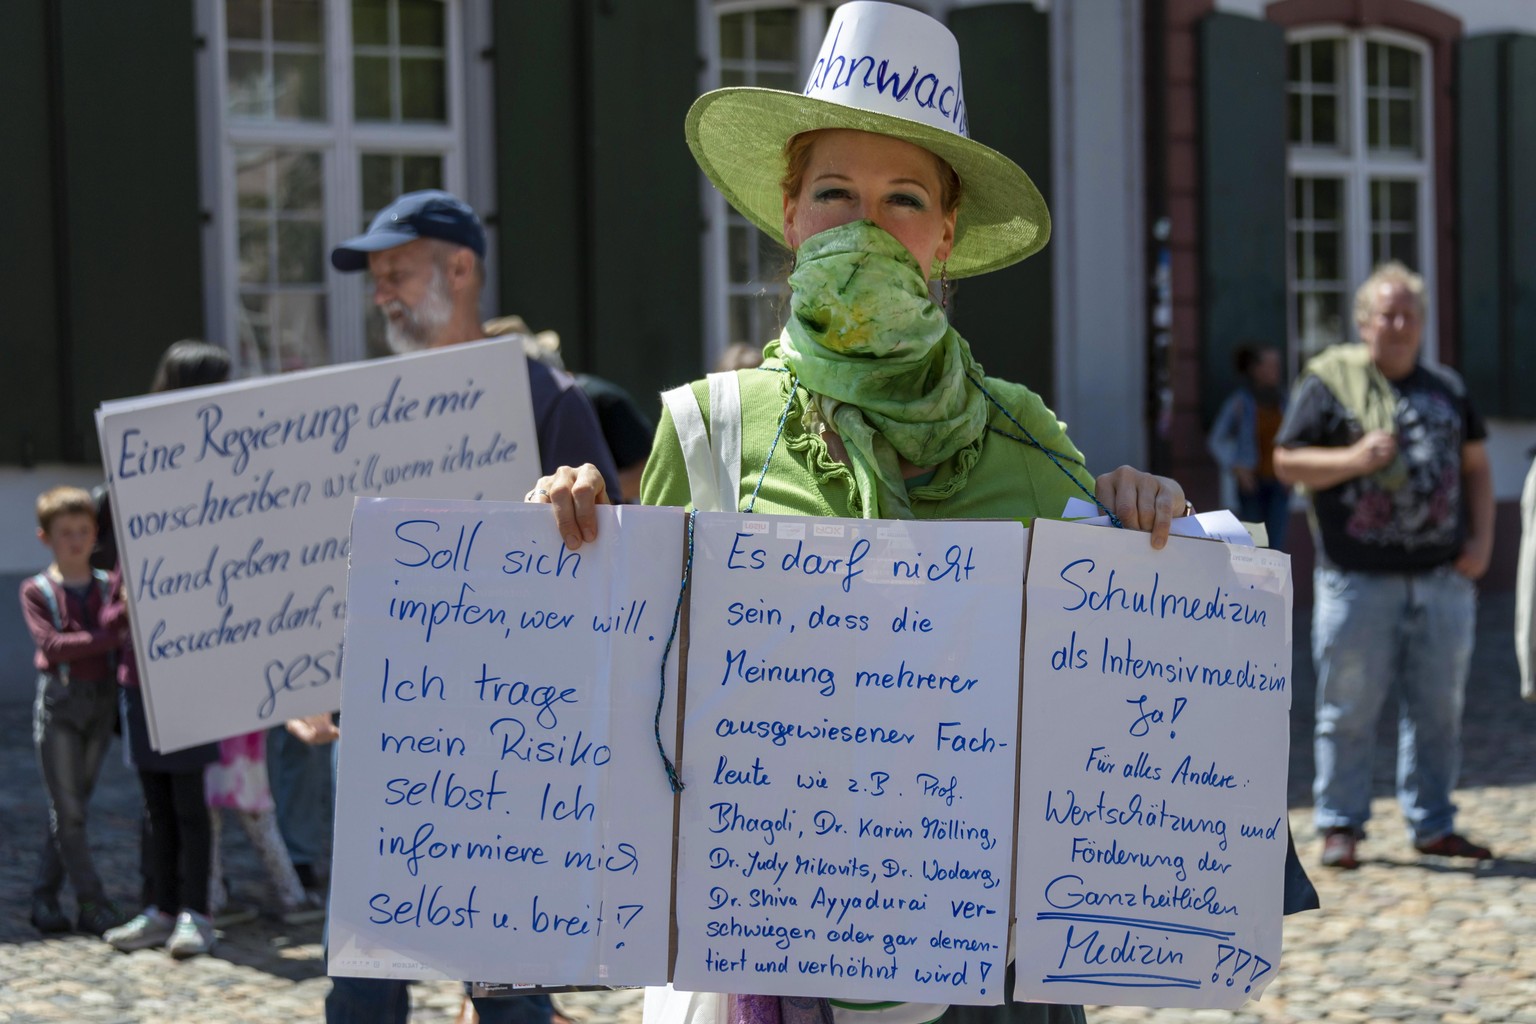 ahnwach
Eine Regierung die mir
vorschreiben will, wem ich die
Hand geben und
besuchen darf,
Soll sich
impfen, wer will.
Ich trage
mein Risiko
selbst. Ich
informiere mich
selbst u. breit!
Es darf nicht
sein, dass die
Meinung mehrerer
ausgewiesener Fach-
leute wie z.B. Prof.
Bhagdi, Dr. Karin Mölling,
Dr. Judy Mikovits, Dr. Wodarg,
Dr. Shiva Ayyadurai ver-
schwiegen oder gar demen-
tiert und verhöhnt wird!
Schulmedizin
als Intensivmedizin
Ja!
Für alles Andere:
Wertschätzung und
Förderung der
Ganzheitlichen
Medizin !!!